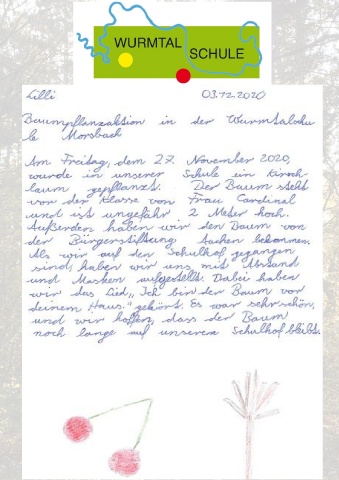 WURMTAL
SCHULE
Lilli 03.12.2020
Baumpflanzaktion in der Wurmtalschu
le Morsbach
Am Freitag, dem 27. November 2020,
wurde in unserer Schule ein Kirsch-
baum gepflanzt. Der Baum steht
vor der Klasse von Frau Cardinal
und ist ungefähr 2 Meter hoch.
Außerdem haben wir den Baum von
der Bürgerstiftung Aachen bekommen.
Als wir auf den Schulhof gegangen
sind, haben wir uns mit Abstand
und Masken aufgestellt. Dabei haben
wir das Lied „Ich bin der Baum vor
deinem Haus." gehört. Es war sehr schön,
und wir hoffen, dass der Baum
noch lange auf unserem Schulhof bleibt.